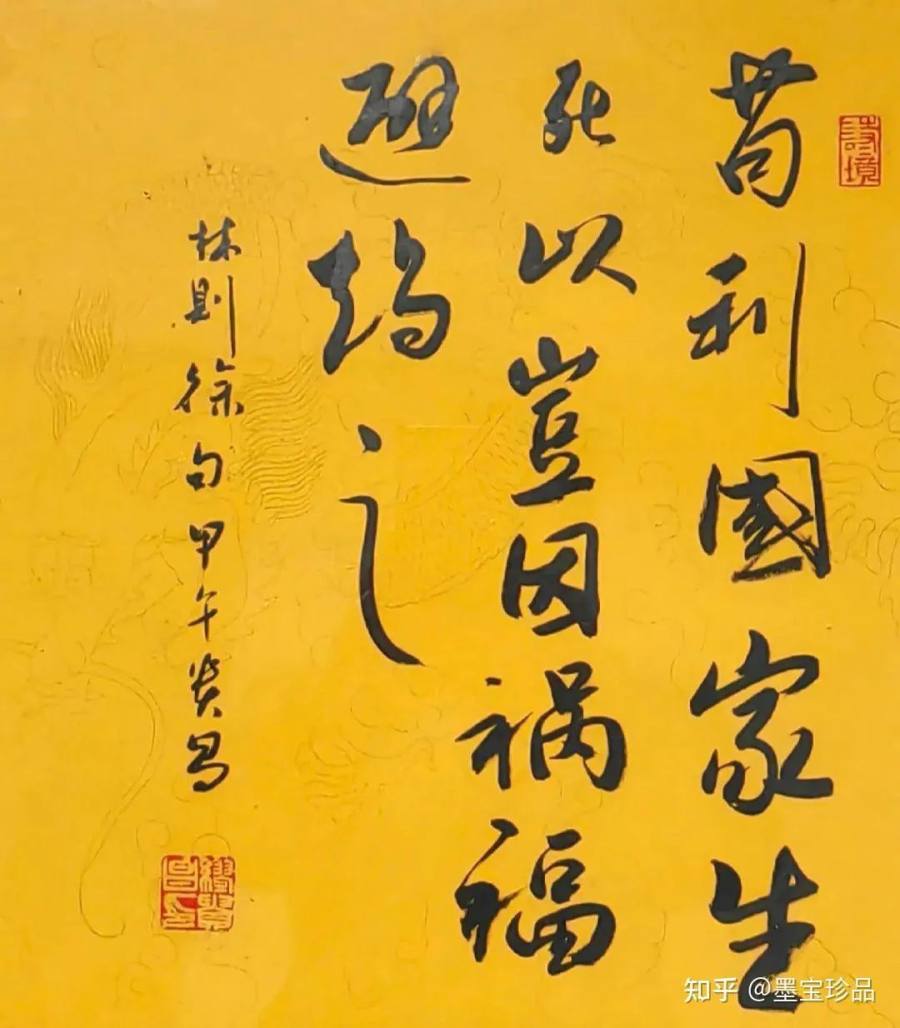 苟利國家生
死以豈因祸福
避趋之
林則徐句甲午贤昌
知乎 @墨宝珍品